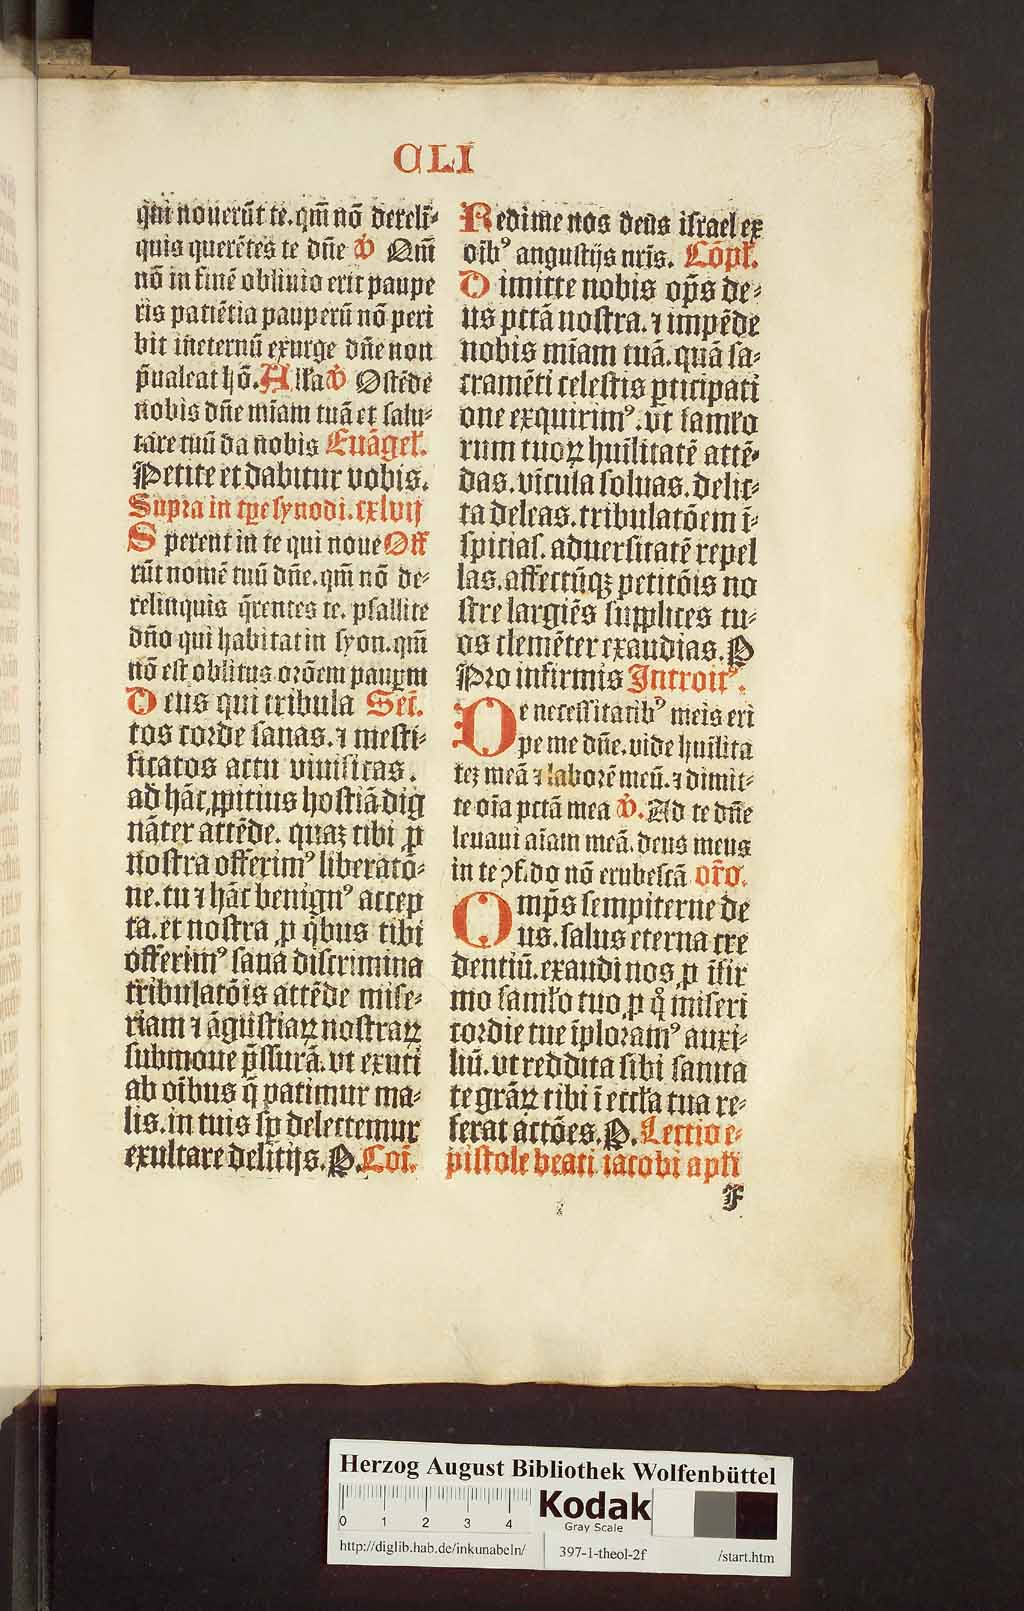 CLI
qui nouerūt te. qm̄ nō dereli⸗
quis querētes te dn̄e ℣ Qm̄
nō in finē obliuio erit paupe
ris patiētia pauperū nō peri
bit ineternū exurge dn̄e non
p̄ualeat hō. Alła ℣ Ostēde
nobis dn̄e mīam tuā et salu⸗
tare tuū da nobis Euāgeł.
Petite et dabitur vobis.
Supra in tꝑe synodi. cxlvij
Sperent in te qui noue Off
rūt nomē tuū dn̄e. qm̄ nō de⸗
relinquis q̄rentes te. psallite
dn̄o qui habitat in syon. qm̄
nō est oblitus orōem pauꝑum
Deus qui tribula Set̄.
tos corde sanas. ⁊ mesti⸗
ficatos actu viuificas.
ad hāc ꝓpitius hostiā dig
nāter attēde. quaꝫ tibi ꝓ
nostra offerim⁹ liberatō⸗
ne. tu ⁊ hāc benign⁹ accep
ta. et nostra ꝓ q̄bus tibi
offerim⁹ sana discrimina
tribulatōis attēde mise⸗
riam ⁊ āgustiaꝝ nostraꝝ
submoue p̄ssurā. vt exuti
ab oībus q̄ patimur ma⸗
lis. in tuis sꝑ delectemur
exultare delitijs. P. Coī.
Redime nos deus israel ex
oīb⁹ angustijs nr̄is. Cōpł.
Dimitte nobis op̄s de⸗
us pctā nostra. ⁊ impēde
nobis mīam tuā. quā sa⸗
cramēti celestis ꝑticipati
one exquirim⁹. vt famło
rum tuoꝝ huīlitatē attē⸗
das. vīcula soluas. delic⸗
ta deleas. tribulatōem ī⸗
spicias. aduersitatē repel
las. affectūqꝫ petitōis no
stre largiēs supplices tu⸗
os clemēter exaudias. P
Pro infirmis Introit⁹.
De necessitatib⁹ meis eri
pe me dn̄e. vide huīlita
teꝫ meā ⁊ laborē meū. ⁊ dimit⸗
te oīa pctā mea ℣. Ad te dn̄e
leuaui aīam meā. deus meus
in te ↄf. do nō erubescā or̄o.
Omp̄s sempiterne de
us. salus eterna cre
dentiū. exaudi nos ꝓ īfir
mo famło tuo ꝓ qͦ miseri
cordie tue īploram⁹ auxi⸗
liū. vt reddita sibi sanita
te grāꝝ tibi ī eccła tua re⸗
ferat actōes. P. Lectio e⸗
pistole beati iacobi apłi
F
Herzog August Bibliothek Wolfenbüttel
0 1 2 3 4
Kodak
Gray Scale
http://diglib.hab.de/inkunabeln/
397-1-theol-2f
/start.htm